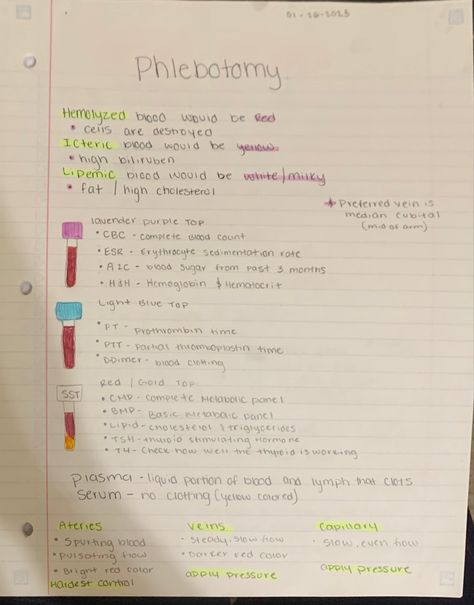 01-26-2023
Phlebotomy
Hemolyzed blood would be Red
• cells are destroyed
Icteric blood would be yellow
• high biliruben
Lipemic blood would be white/milky
• fat / high cholesterol
* Preferred vein is
median cubital
(mid of arm)
lavender purple Top
• CBC - complete Blood count
• ESR - Erythrocyte sedimentation rate
• A1C - blood sugar from past 3 months
• H&H - Hemoglobin & Hematocrit
Light Blue Top
• PT - Prothrombin time
• PTT - Partial thromboplastin time
• DDimer - blood clotting
Red / Gold Top
SST
• CMP - complete Metabolic panel
• BMP - Basic Metabolic panel
• Lipid - cholesterol & triglycerides
• TSH - thyroid stimulating Hormone
• T4 - Check how well the thyroid is working
plasma - liquid portion of blood and lymph that clots
serum - no clotting (yellow colored)
Ateries
• spurting blood
• pulsating flow
• Bright red color
Hardest control
veins
• steady, slow flow
• Darker red color
apply pressure
Capillary
• slow, even flow
apply pressure